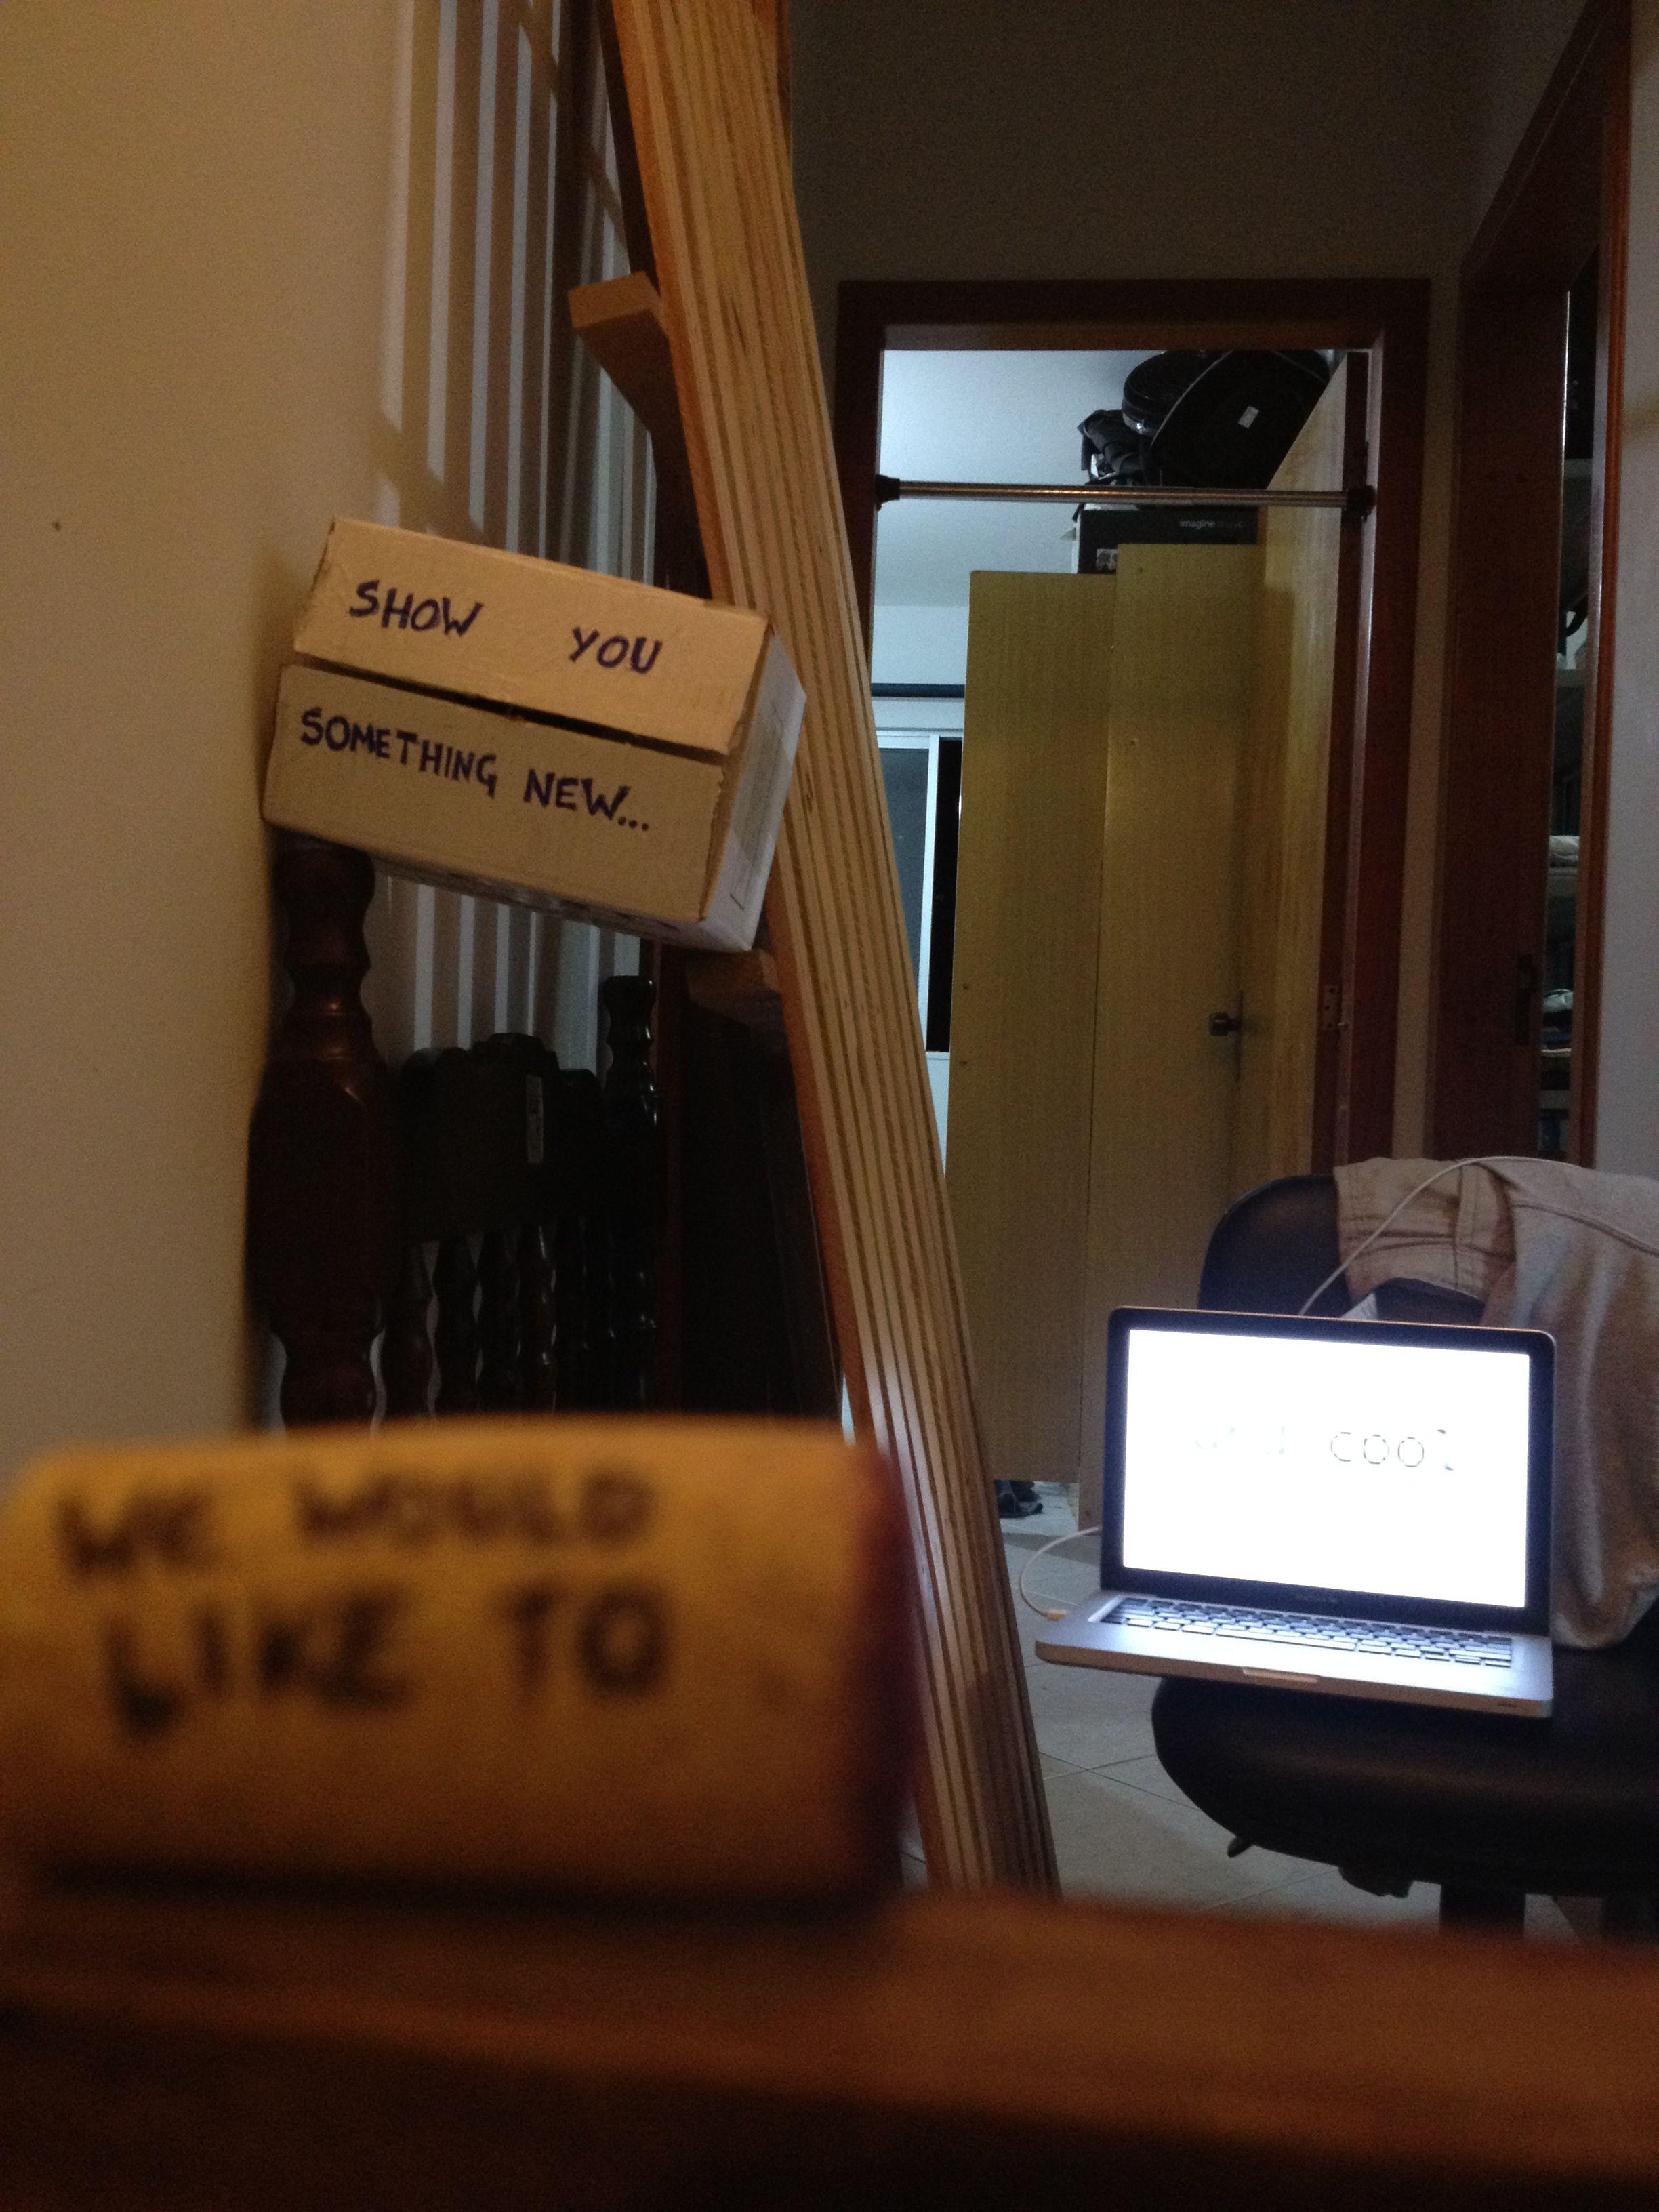 WE WOULD
LIKE TO
SHOW YOU
SOMETHING NEW...
and cool
imagine